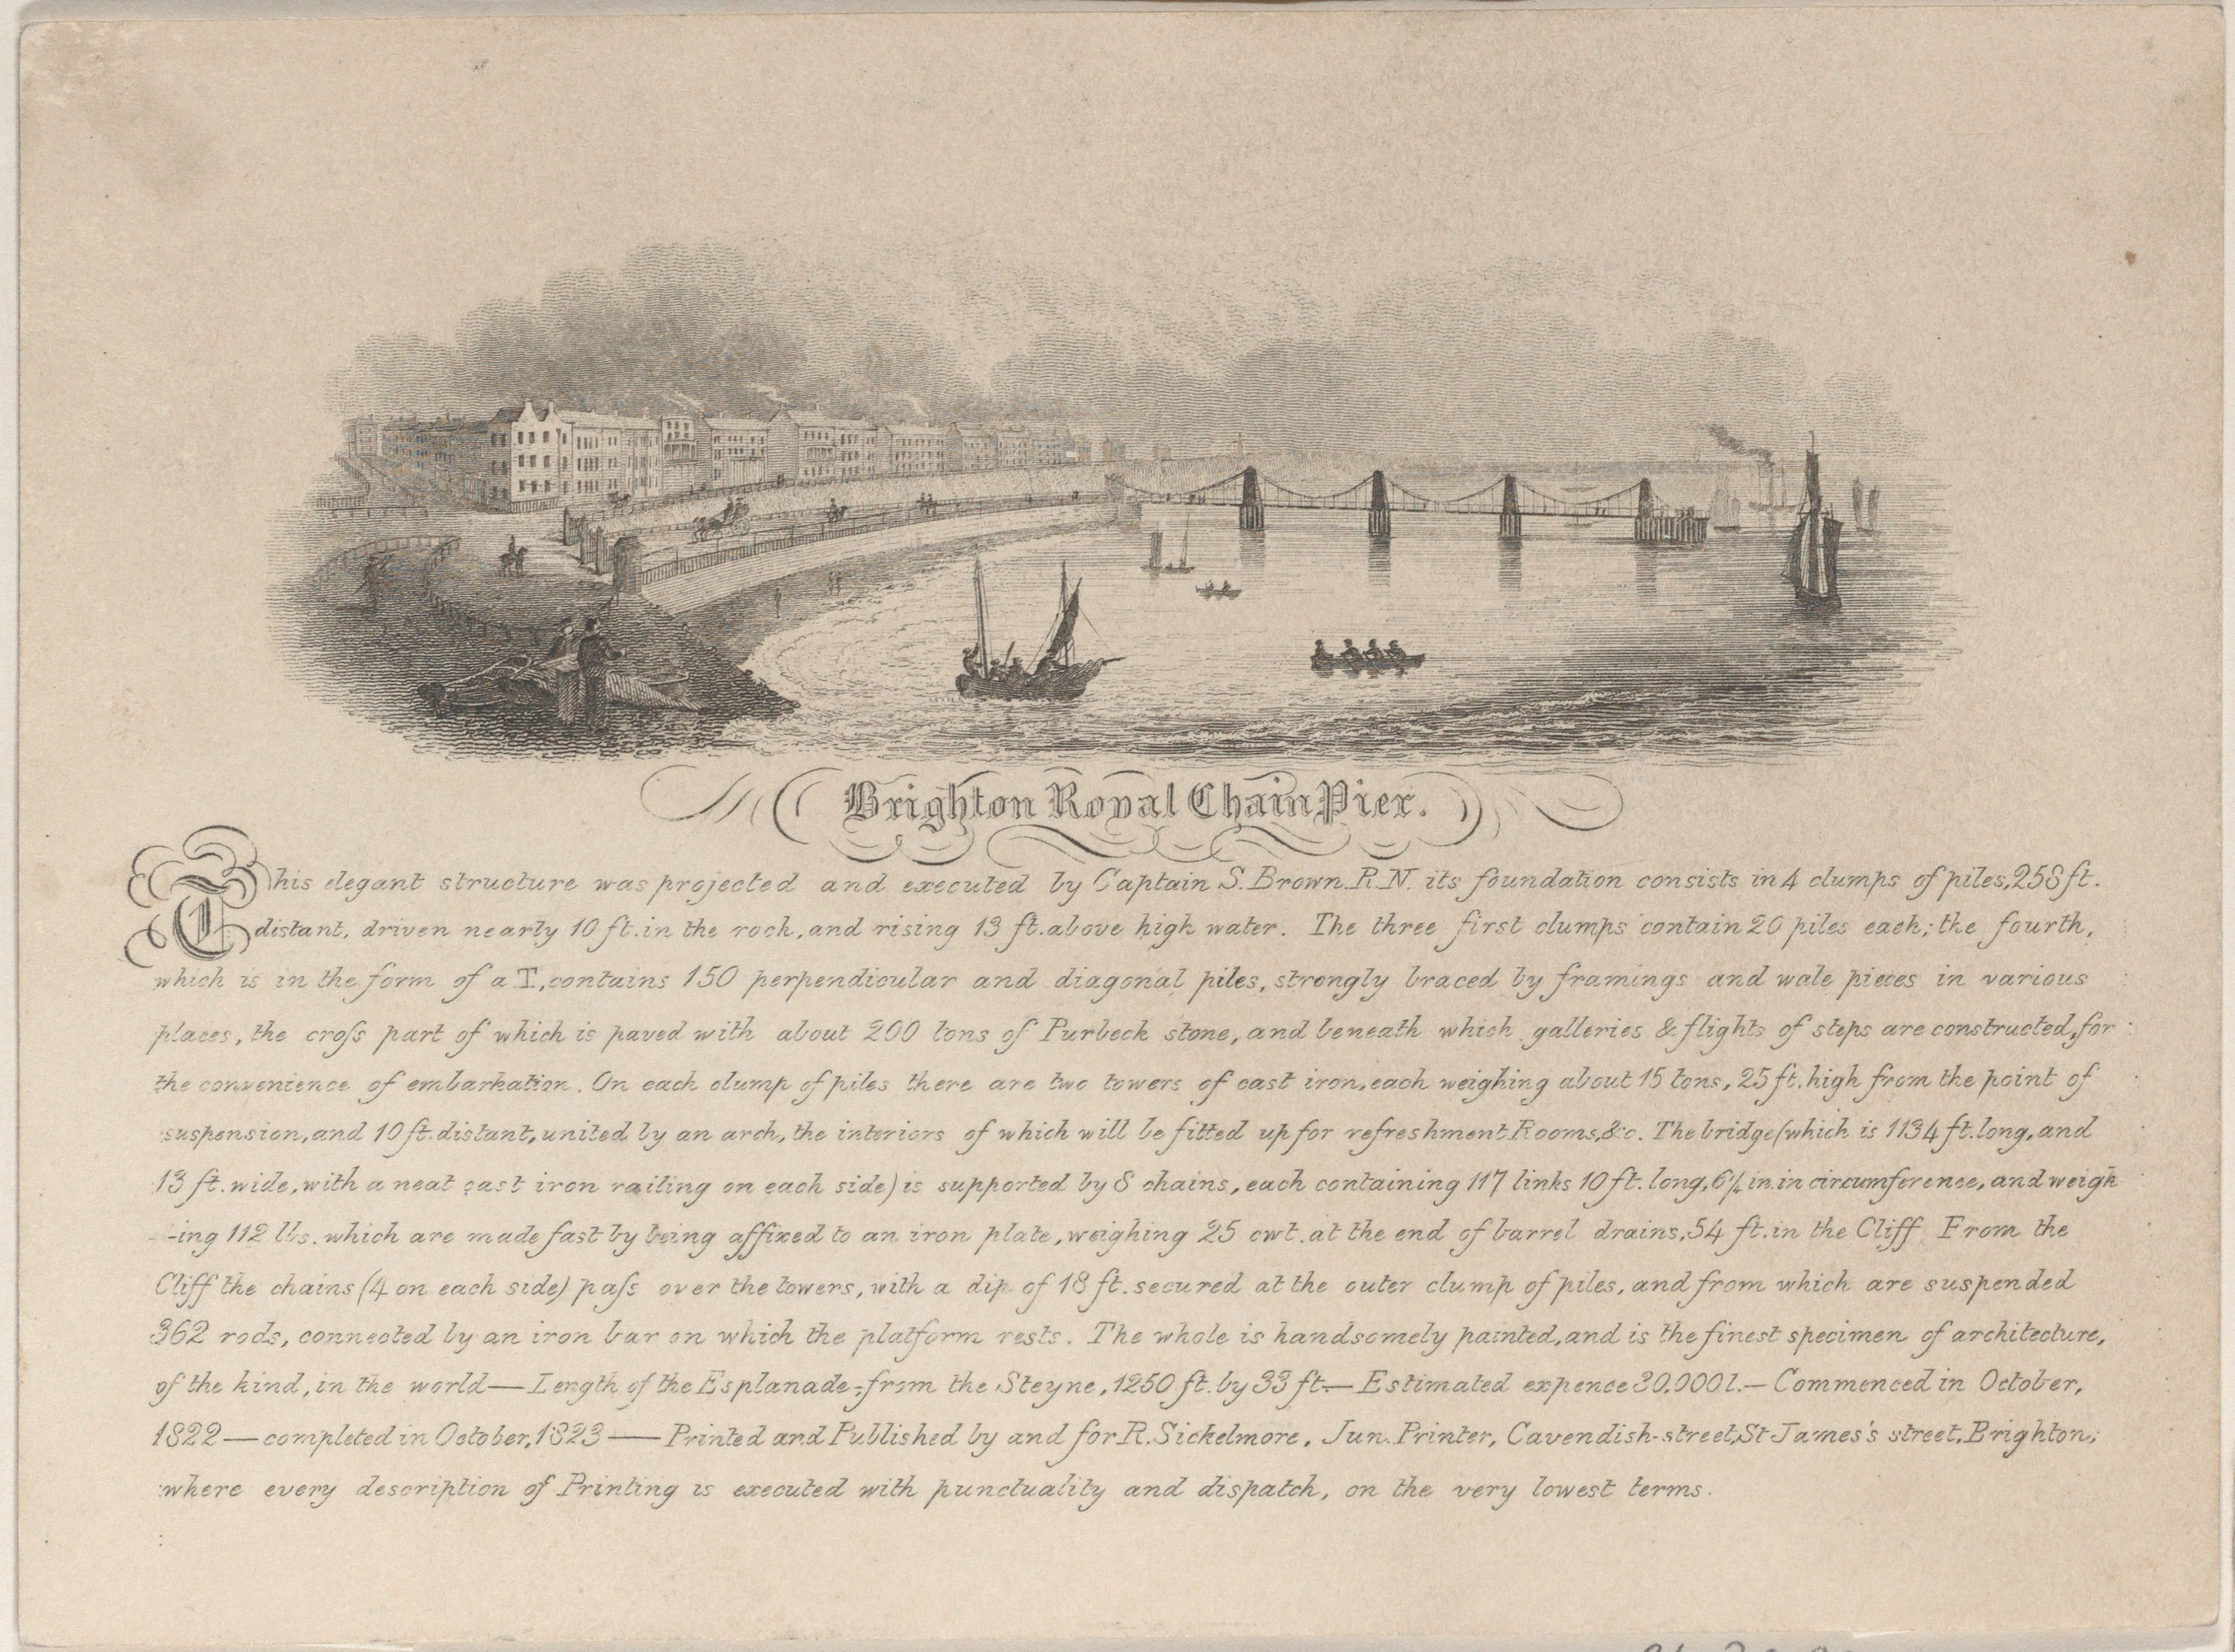 Brighton Royal Chain Pier.
This elegant structure was projected and executed by Captain S. Brown. R.N. its foundation consists in 4 clumps of piles, 258 ft.
distant, driven nearly 10 ft. in the rock, and rising 13 ft. above high water. The three first clumps contain 20 piles each; the fourth,
which is in the form of a T, contains 150 perpendicular and diagonal piles, strongly braced by framings and wale pieces in various
places, the croſs part of which is paved with about 200 tons of Purbeck stone, and beneath which galleries & flights of steps are constructed, for
the convenience of embarkation. On each clump of piles there are two towers of cast iron, each weighing about 15 tons, 25 ft. high from the point of
suspension, and 10 ft. distant, united by an arch, the interiors of which will be fitted up for refreshment Rooms, &c. The bridge (which is 1134 ft. long, and
13 ft. wide, with a neat cast iron railing on each side) is supported by 8 chains, each containing 117 links 10 ft. long, 6¼ in. in circumference, and weigh
-ing 112 lbs. which are made fast by being affixed to an iron plate, weighing 25 cwt. at the end of barrel drains, 54 ft. in the Cliff. From the
Cliff the chains (4 on each side) paſs over the towers, with a dip of 18 ft. secured at the outer clump of piles, and from which are suspended
362 rods, connected by an iron bar on which the platform rests. The whole is handsomely painted, and is the finest specimen of architecture,
of the kind, in the world — Length of the Esplanade, from the Steyne, 1250 ft. by 33 ft. — Estimated expence 30,000l. — Commenced in October,
1822 — completed in October, 1823 — Printed and Published by and for R. Sickelmore, Jun. Printer, Cavendish-street, St James's street, Brighton;
where every description of Printing is executed with punctuality and dispatch, on the very lowest terms.